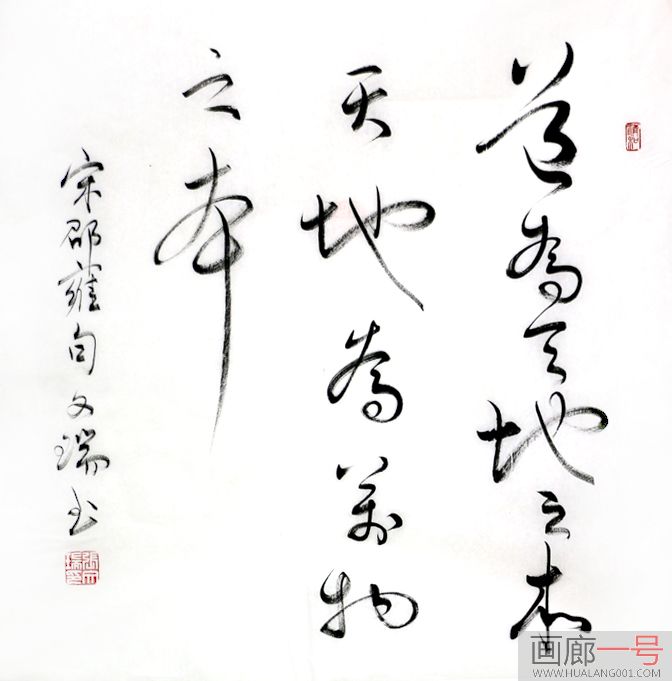 道為天地之本
天地為萬物
之本
宋邵雍句文瑞书
画廊一号
WWW.HUALANG001.COM